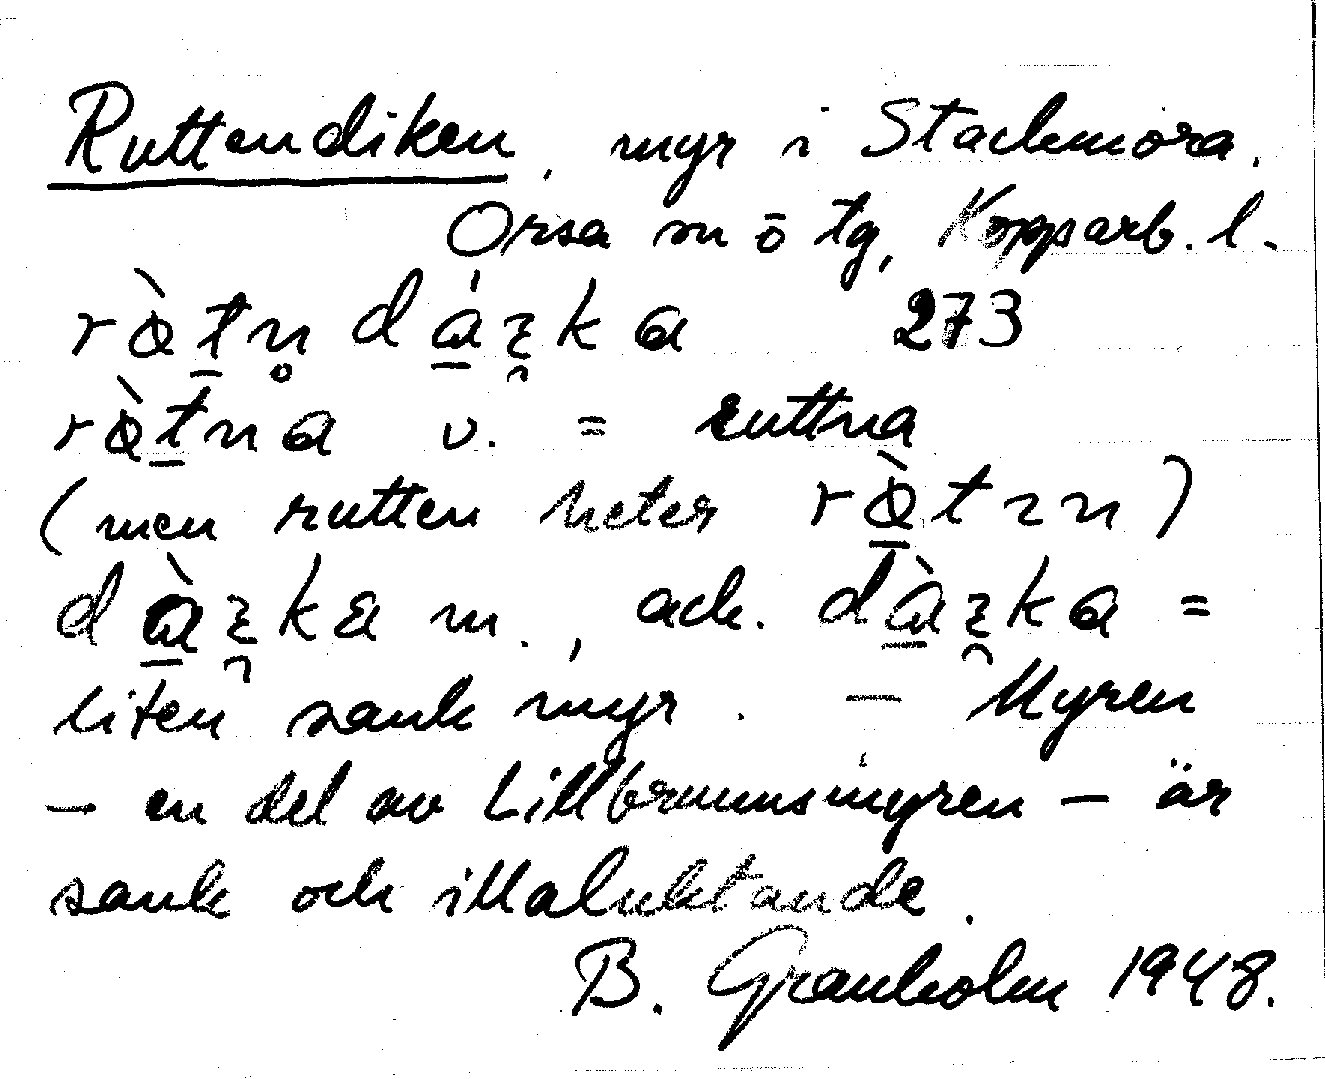 Ruttendiken, myr i Stackmora.
Orsa sn o tg, Kopparb. l.
273
v. = ruttna
(men rutten heter
m., ack. =
liten sank myr. — Myren
— en del av Lillbrunnsmyren — är
sank och illaluktande.
B. Granholm 1948.